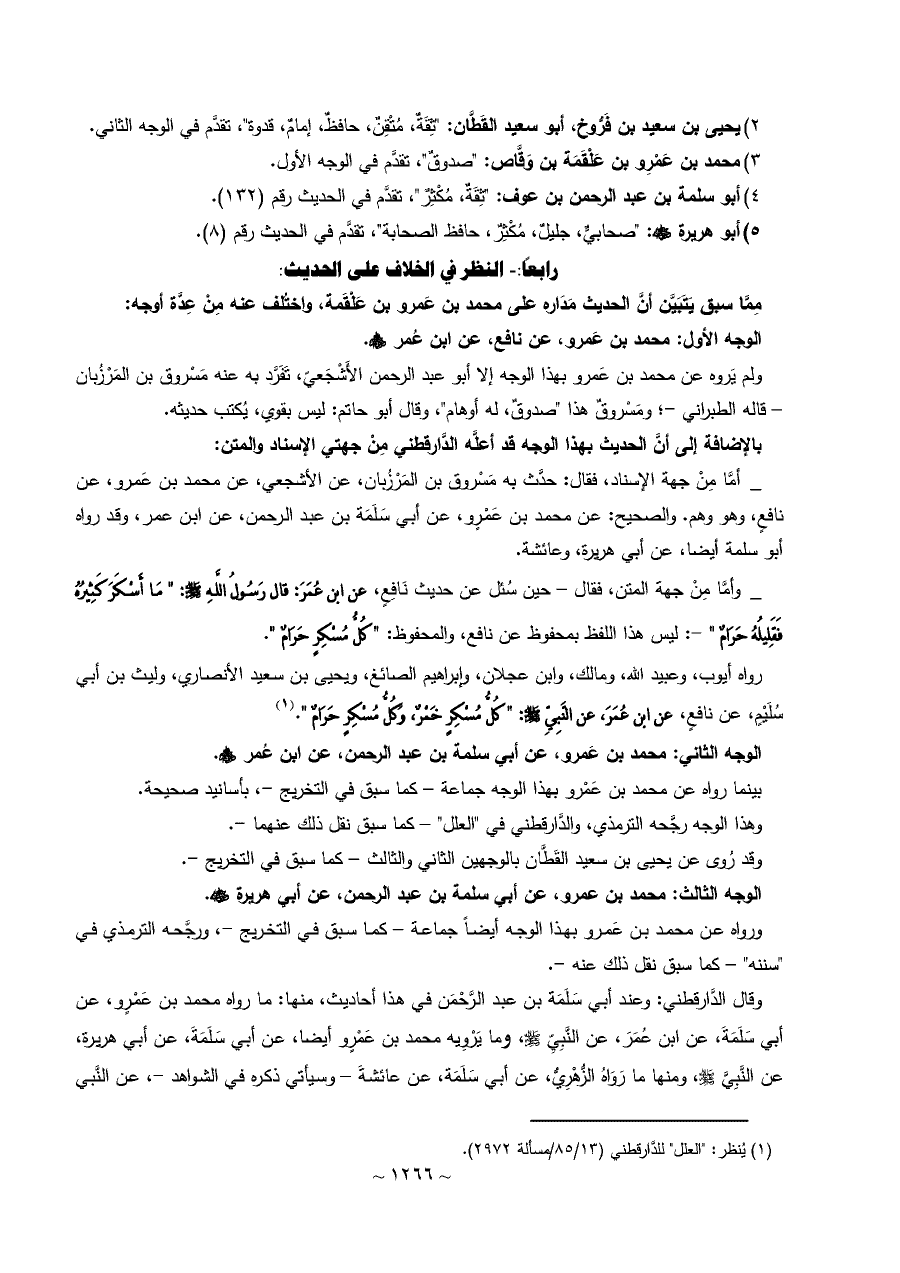 ٢) يحيى بن سعيد بن فَرُّوخ، أبو سعيد القَطَّان: "ثِقَةٌ، مُتْقِنٌ، حافظٌ، إمامٌ، قدوة"، تقدَّم في الوجه الثاني.
٣) محمد بن عَمْرِو بن عَلْقَمَة بن وَقَّاص: "صدوقٌ"، تقدَّم في الوجه الأول.
٤) أبو سلمة بن عبد الرحمن بن عوف: "ثِقَةٌ، مُكْثِرٌ"، تقدَّم في الحديث رقم (١٣٢).
٥) أبو هريرة ﷺ: "صحابيٌّ، جليلٌ، مُكْثِرٌ، حافظ الصحابة"، تقدَّم في الحديث رقم (٨).
رابعاً:- النظر في الخلاف على الحديث:
مِمَّا سبق يَتَبَيَّن أنَّ الحديث مَدَاره على محمد بن عَمرو بن عَلْقَمة، واختُلف عنه مِنْ عِدَّة أوجه:
الوجه الأول: محمد بن عَمرو، عن نافع، عن ابن عُمر.
ولم يَروه عن محمد بن عَمرو بهذا الوجه إلا أبو عبد الرحمن الأَشْجَعيّ، تَفَرَّد به عنه مَسْروق بن المَرْزُبان
– قاله الطبراني –؛ ومَسْروقٌ هذا "صدوقٌ، له أوهام"، وقال أبو حاتم: ليس بقوي، يُكتب حديثه.
بالإضافة إلى أنَّ الحديث بهذا الوجه قد أعلَّه الدَّارقطني مِنْ جهتي الإسناد والمتن:
_ أمَّا مِنْ جهة الإسناد، فقال: حدَّث به مَسْروق بن المَرْزُبان، عن الأشجعي، عن محمد بن عَمرو، عن
نافعٍ، وهو وهم. والصحيح: عن محمد بن عَمْرٍو، عن أبي سَلَمَة بن عبد الرحمن، عن ابن عمر، وقد رواه
أبو سلمة أيضا، عن أبي هريرة، وعائشة.
_ وأمَّا مِنْ جهة المتن، فقال – حين سُئل عن حديث نَافِعٍ، عن ابن عُمَرَ: قال رَسُولُ اللَّهِ ﷺ: " مَا أَسْكَرَ كَثِيرُهُ
فَقَلِيلُهُ حَرَامٌ " –: ليس هذا اللفظ بمحفوظ عن نافع، والمحفوظ: " كُلُّ مُسْكِرٍ حَرَامٌ ".
رواه أيوب، وعبيد الله، ومالك، وابن عجلان، وإبراهيم الصائغ، ويحيى بن سعيد الأنصاري، وليث بن أبي
سُلَيْمٍ، عن نافعٍ، عن ابن عُمَرَ، عن النَّبِيِّ ﷺ: " كُلُّ مُسْكِرٍ خَمْرٌ، وَكُلُّ مُسْكِرٍ حَرَامٌ ".(١)
الوجه الثاني: محمد بن عَمرو، عن أبي سلمة بن عبد الرحمن، عن ابن عُمر.
بينما رواه عن محمد بن عَمْرو بهذا الوجه جماعة – كما سبق في التخريج –، بأسانيد صحيحة.
وهذا الوجه رجَّحه الترمذي، والدَّارقطني في "العلل" – كما سبق نقل ذلك عنهما –.
وقد رُوى عن يحيى بن سعيد القَطَّان بالوجهين الثاني والثالث – كما سبق في التخريج –.
الوجه الثالث: محمد بن عمرو، عن أبي سلمة بن عبد الرحمن، عن أبي هريرة.
ورواه عن محمد بن عَمرو بهذا الوجه أيضاً جماعة – كما سبق في التخريج –، ورجَّحه الترمذي في
"سننه" – كما سبق نقل ذلك عنه –.
وقال الدَّارقطني: وعند أبي سَلَمَة بن عبد الرَّحْمَن في هذا أحاديث، منها: ما رواه محمد بن عَمْرٍو، عن
أبي سَلَمَةَ، عن ابن عُمَرَ، عن النَّبِيِّ ﷺ، وما يَرْوِيه محمد بن عَمْرٍو أيضا، عن أبي سَلَمَةَ، عن أبي هريرة،
عن النَّبِيَّ ﷺ، ومنها ما رَوَاهُ الزُّهْرِيُّ، عن أبي سَلَمَة، عن عائشةَ – وسيأتي ذكره في الشواهد –، عن النَّبي
(١) يُنظر: "العلل" للدَّارقطني (٨٥/١٣/مسألة ٢٩٧٢).
~ ١٢٦٦ ~